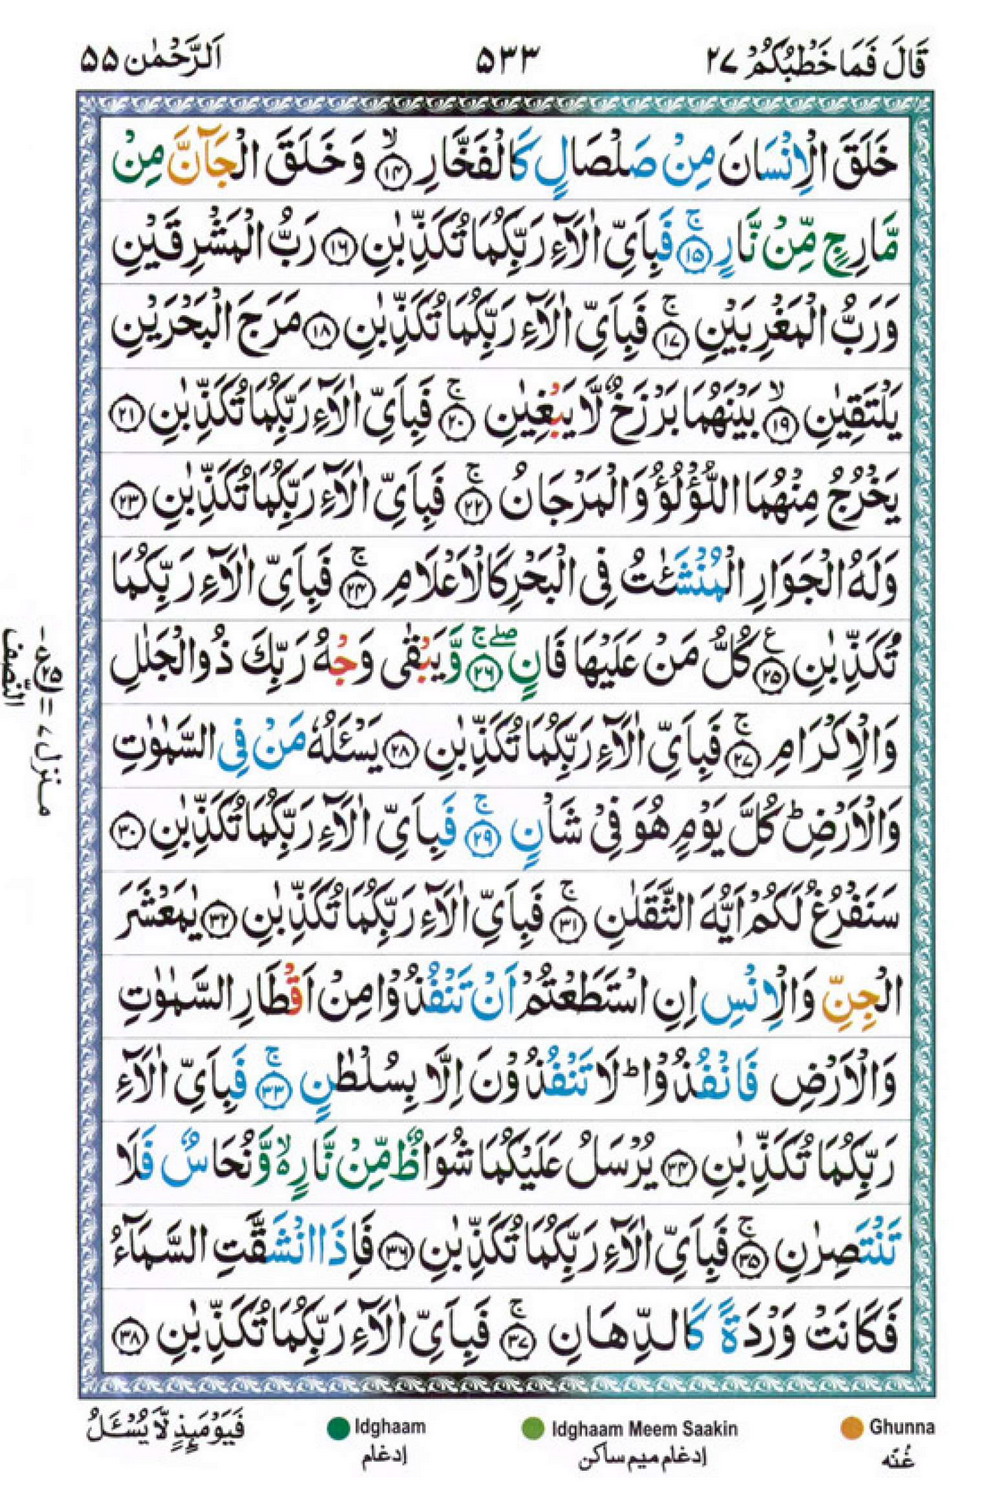 قَالَ فَمَا خَطْبُكُمْ ٢٧ ٥٣٣ اَلرَّحْمٰن ٥٥
خَلَقَ الْاِنْسَانَ مِنْ صَلْصَالٍ كَالْفَخَّارِ ۙ﴿۱۴﴾ وَ خَلَقَ الْجَآنَّ مِنْ
مَّارِجٍ مِّنْ نَّارٍ ۚ﴿۱۵﴾ فَبِاَيِّ اٰلَآءِ رَبِّكُمَا تُكَذِّبٰنِ ﴿۱۶﴾ رَبُّ الْمَشْرِقَيْنِ
وَرَبُّ الْمَغْرِبَيْنِ ۚ﴿۱۷﴾ فَبِاَيِّ اٰلَآءِ رَبِّكُمَا تُكَذِّبٰنِ ﴿۱۸﴾ مَرَجَ الْبَحْرَيْنِ
يَلْتَقِيٰنِ ۙ﴿۱۹﴾ بَيْنَهُمَا بَرْزَخٌ لَّا يَبْغِيٰنِ ۚ﴿۲۰﴾ فَبِاَيِّ اٰلَآءِ رَبِّكُمَا تُكَذِّبٰنِ ﴿۲۱﴾
يَخْرُجُ مِنْهُمَا اللُّؤْلُؤُ وَالْمَرْجَانُ ۚ﴿۲۲﴾ فَبِاَيِّ اٰلَآءِ رَبِّكُمَا تُكَذِّبٰنِ ﴿۲۳﴾
وَلَهُ الْجَوَارِ الْمُنْشَئٰتُ فِي الْبَحْرِ كَالْاَعْلَامِ ۚ﴿۲۴﴾ فَبِاَيِّ اٰلَآءِ رَبِّكُمَا
تُكَذِّبٰنِ ۧ﴿۲۵﴾ كُلُّ مَنْ عَلَيْهَا فَانٍ ۚۖ﴿۲۶﴾ وَّيَبْقٰى وَجْهُ رَبِّكَ ذُو الْجَلٰلِ
وَالْاِكْرَامِ ۚ﴿۲۷﴾ فَبِاَيِّ اٰلَآءِ رَبِّكُمَا تُكَذِّبٰنِ ﴿۲۸﴾ يَسْئَلُهٗ مَنْ فِي السَّمٰوٰتِ
وَالْاَرْضِ ؕ كُلَّ يَوْمٍ هُوَ فِيْ شَاْنٍ ۚ﴿۲۹﴾ فَبِاَيِّ اٰلَآءِ رَبِّكُمَا تُكَذِّبٰنِ ﴿۳۰﴾
سَنَفْرُغُ لَكُمْ اَيُّهَ الثَّقَلٰنِ ۚ﴿۳۱﴾ فَبِاَيِّ اٰلَآءِ رَبِّكُمَا تُكَذِّبٰنِ ﴿۳۲﴾ يٰمَعْشَرَ
الْجِنِّ وَالْاِنْسِ اِنِ اسْتَطَعْتُمْ اَنْ تَنْفُذُوْا مِنْ اَقْطَارِ السَّمٰوٰتِ
وَالْاَرْضِ فَانْفُذُوْا ؕ لَا تَنْفُذُوْنَ اِلَّا بِسُلْطٰنٍ ۚ﴿۳۳﴾ فَبِاَيِّ اٰلَآءِ
رَبِّكُمَا تُكَذِّبٰنِ ﴿۳۴﴾ يُرْسَلُ عَلَيْكُمَا شُوَاظٌ مِّنْ نَّارٍ ۙ۬ وَّنُحَاسٌ فَلَا
تَنْتَصِرٰنِ ۚ﴿۳۵﴾ فَبِاَيِّ اٰلَآءِ رَبِّكُمَا تُكَذِّبٰنِ ﴿۳۶﴾ فَاِذَا انْشَقَّتِ السَّمَآءُ
فَكَانَتْ وَرْدَةً كَالدِّهَانِ ۚ﴿۳۷﴾ فَبِاَيِّ اٰلَآءِ رَبِّكُمَا تُكَذِّبٰنِ ﴿۳۸﴾
النّصف
منزل ۷
فَيَوْمَئِذٍ لَّا يُسْئَلُ
Idghaam Idghaam Meem Saakin Ghunna
إدغام إدغام ميم ساكن غُنّه